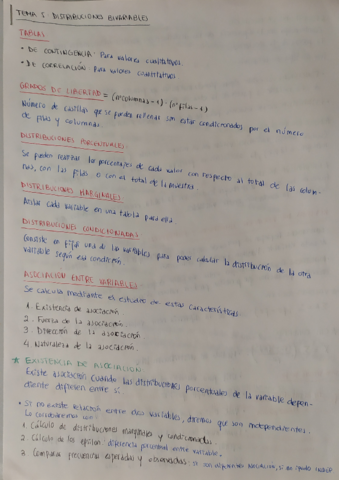 TEMA 5: DISTRIBUCIONES BIVARIABLES
TABLAS
• DE CONTINGENCIA: Para valores cualitativos
• DE CORRELACIÓN: para valores cuantitativos
GRADOS DE LIBERTAD = (nºcolumnas-1) · (nºfilas-1)
Número de casillas que se pueden rellenar sin estar condicionados por el número
de filas y columnas.
DISTRIBUCIONES PORCENTUALES
Se pueden realizar los porcentajes de cada valor con respecto al total de las colum-
nas, con las filas o con el total de la muestra
DISTRIBUCIONES MARGINALES
Aislar cada variable en una tabla para ella
DISTRIBUCIONES CONDICIONADAS
Consiste en fijar una de las variables para poder calcular la distribución de la otra
variable según esa condición
ASOCIACIÓN ENTRE VARIABLES
Se calcula mediante el estudio de estas características:
1. Existencia de asociación
2. Fuerza de la asociación
3. Dirección de la asociación
4. Naturaleza de la asociación
* EXISTENCIA DE ASOCIACIÓN
Existe asociación cuando las distribuciones porcentuales de la variable depen-
diente dependen entre sí.
• Si no existe relación entre dos variables, diremos que son independientes.
Lo calculamos con:
1. Cálculo de distribuciones marginales y condicionadas.
2. Cálculo de los epsilon: diferencia porcentual entre variable.
3. Comparar frecuencias esperadas y observadas: si son diferentes